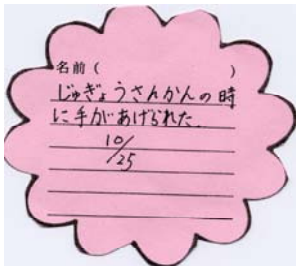 名前（　　　　　）
じゅぎょうさんかんの時
に手があげられた.
10/25